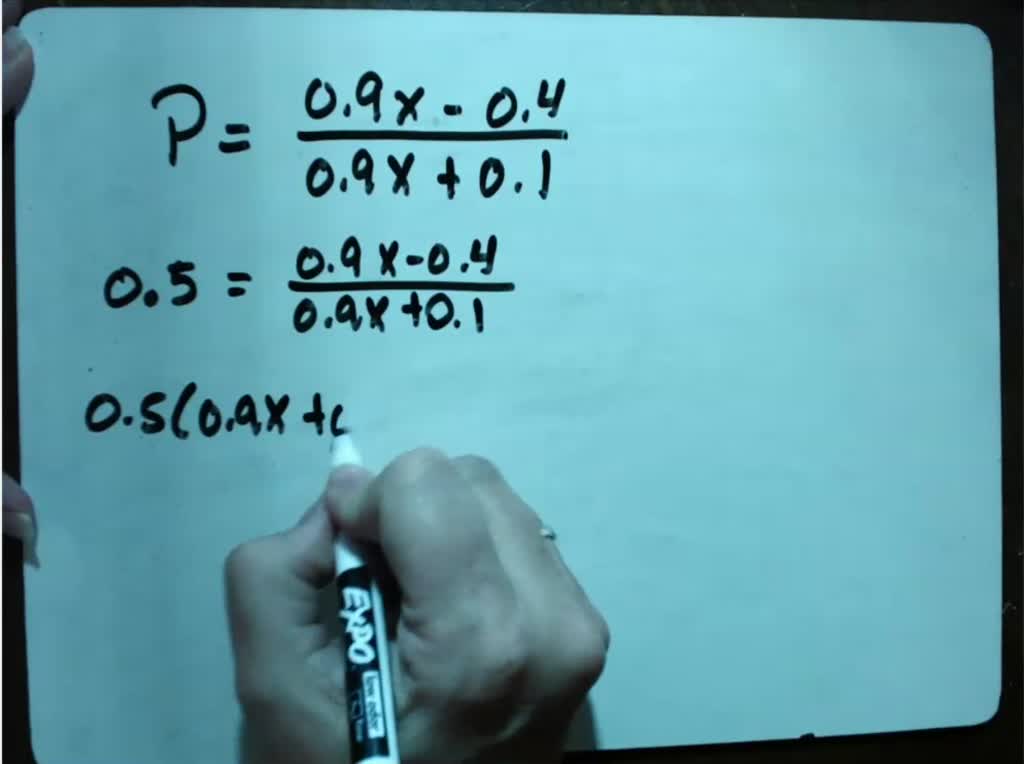 P = 0.9x - 0.4
0.9x + 0.1
0.5 = 0.9x-0.4
0.9x+0.1
0.5(0.9x +0
EXPO
low odor